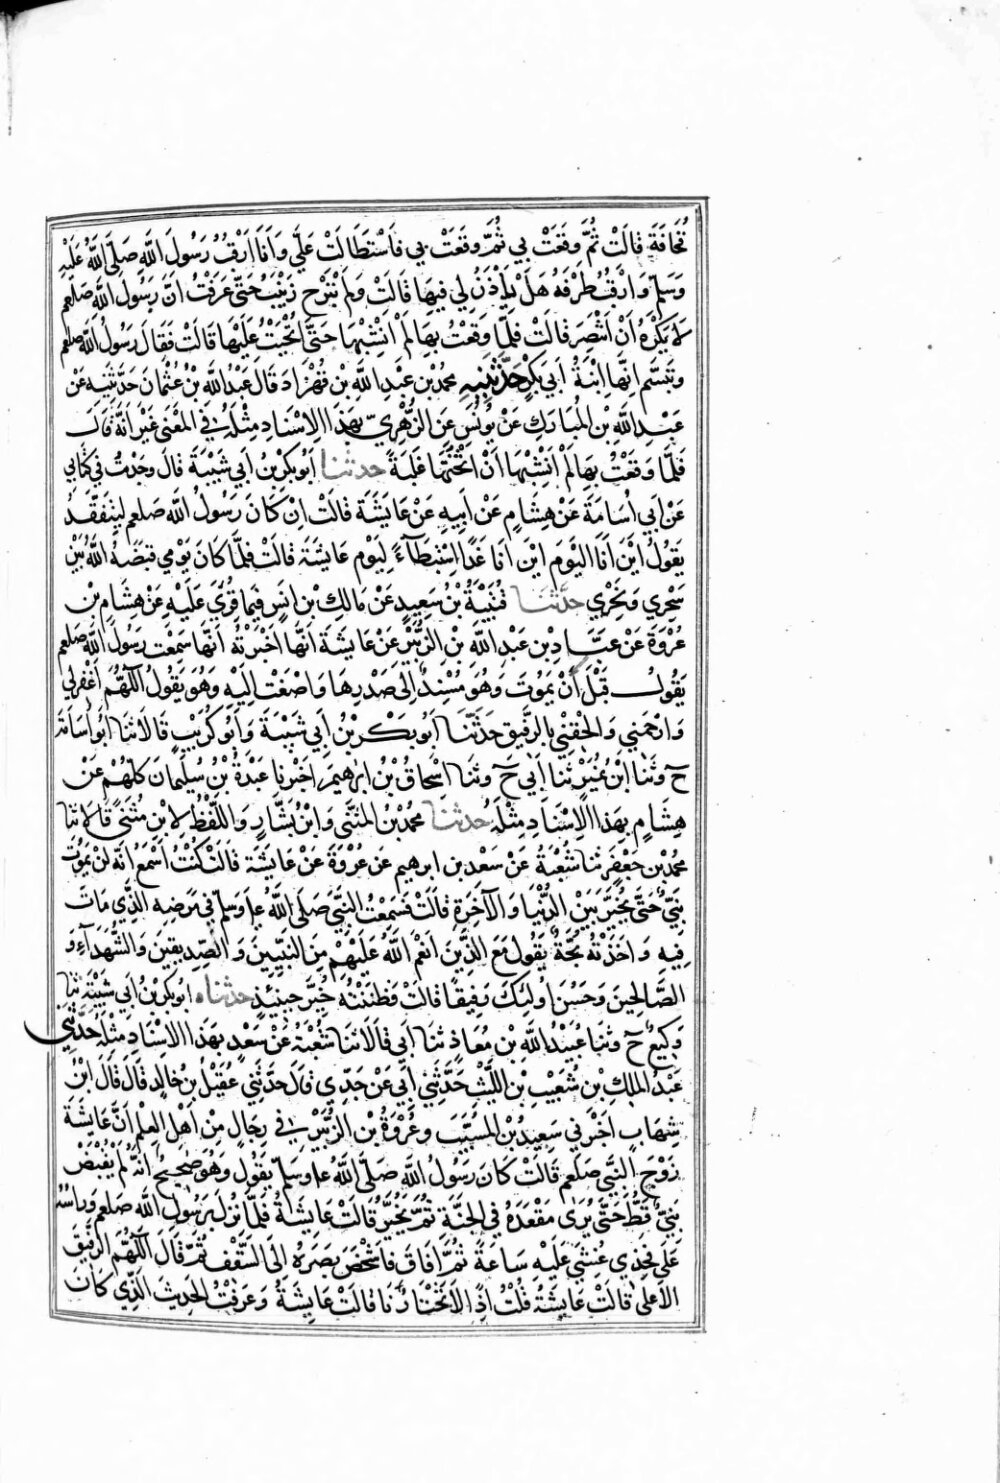 قحافة قالت ثُمَّ وقَعَتْ بي ثُمَّ وقعَتْ بي فاسْتطالتْ علَيَّ وَاَنَا اَرْقُبُ رَسُولَ اللهِ صَلَّى اللهُ عَلَيْهِ
وَسَلم وَارْقُبُ طَرْفَهُ هَلْ يَأْذَنُ لِي فيهَا قَالَتْ وَلَمْ تَبْرَحْ زَيْنَبُ حَتَّى عَرَفْتُ انَّ رَسُولَ اللهِ صلعم
لَا يَكْرَهُ اَنْ اَنْتَصِرَ قالتْ فلمّا وَقعْتُ بهَا لَمْ اَنْشَبْهَا حَتَّى اَنْحَيْتُ عَلَيْهَا قَالَتْ فَقَالَ رَسُولُ الله صلعم
وتَبَسَّم انَّها ابْنَةُ اَبي بَكْرٍ حَدَّثَنِيهِ محمدُ بْن عَبْدِ اللهِ بْن قُهْزَاذَ قال عَبْدُ اللهِ بْنُ عُثْمَانَ حَدَّثَنِيهِ عَنْ
عَبْدِ اللهِ بْنِ المُبَارَكِ عَنْ يُونُسَ عَنِ الزُّهْرِيِّ بِهَذَا الِاسْنَادِ مِثْلَهُ في المَعْنَى غَيْرَ انَّهُ قَالَ
فَلَمَّا وَقَعْتُ بِهَا لَمْ اَنْشَبْهَا اَنْ اَثْخَنْتُهَا غَلَبَةً حدثنا اَبُو بَكْرِ بْنُ اَبي شَيْبَةَ قالَ وجَدْتُ في كتَابي
عَنْ اَبي اُسَامَةَ عَنْ هِشَامٍ عَنْ اَبِيهِ عَنْ عَايشَةَ قالَتْ اِنْ كَانَ رَسُولُ الله صلعم لَيَتَفَقَّدُ
يَقُولُ اَيْنَ اَنَا اليَوْمَ اَيْنَ اَنَا غَدًا اسْتِبْطَآءً لِيَوْمِ عَايشَةَ قالَتْ فَلَمَّا كَانَ يَوْمي قبَضَهُ اللهُ بَيْنَ
سَحْرِي وَنَحْرِي حَدَّثنَا قُتَيْبَةُ بْنُ سَعِيدٍ عَنْ مَالِكِ بْنِ اَنَسٍ فيمَا قُرِئَ عَلَيْهِ عَنْ هِشَامِ بْنِ
عُرْوَةَ عَنْ عَبَّادِ بْنِ عَبْدِ اللهِ بْنِ الزُّبَيْرِ عَنْ عَايشَةَ انَّهَا اَخْبَرَتْهُ اَنَّها سَمِعَتْ رَسُولَ اللهِ صلعم
يَقُولُ قَبْلَ اَنْ يَمُوتَ وَهُوَ مُسْنِدٌ اِلَى صَدْرِهَا وَاَصْغَتْ اِلَيْهِ وَهُوَ يَقُولُ اَللّهُمَّ اغْفِرْ لي
وَارْحَمْنِي وَالْحِقْنِي بالرَّفِيقِ حَدَثَنَا اَبُو بَكْرِ بْنُ اَبي شَيْبَةَ وَاَبُو كُرَيْبٍ قَالَا ثنَا اَبُو اُسَامَةَ
ح وَثَنا ابْنُ نُمَيْرٍ ثنا اَبي ح وثنا اسْحاقُ بْنُ ابرهِيمَ اخْبرنا عَبْدَةُ بْنُ سُلَيْمَانَ كلّهُمْ عَنْ
هِشَامٍ بِهذا الاسْنَادِ مِثْلَهُ حدثنَا محمدُ بْنُ المُثَنَّى وَابْنُ بَشَّارٍ وَاللَّفْظُ لِابْنِ مُثَنَّى قَالَا ثنا
محمدُ بْن جَعْفَرٍ ثنا شُعْبَةُ عَنْ سَعْدِ بن ابرهِيمَ عَنْ عُرْوَةَ عَنْ عَايشَةَ قالَتْ كُنْتُ اَسْمَعُ انَّه لَنْ يَمُوتَ
نَبِيٌّ حَتَّى يُخَيَّرَ بَيْنَ الدُّنْيَا وَالْآخِرَةِ قالَتْ فَسَمعْتُ النَّبِيَّ صَلَّى اللهُ علـ وسلم في مَرَضِهِ الَّذِي مَاتَ
فِيهِ وَاخَذَتْهُ بُحَّةٌ يَقُولُ مَعَ الَّذِينَ اَنْعَمَ اللهُ عَلَيْهِمْ مِنَ النَّبِيِّينَ وَالصِّدِيقِينَ وَالشُّهَدَآءِ وَ
الصَّالِحِينَ وَحَسُنَ اُولَئِكَ رَفِيقًا قالَتْ فَظَنَنْتُهُ خُيِّرَ حِينَئِذٍ حدثناه ابُو بَكْرِ بْنُ اَبي شَيْبَةَ ثنا
وَكِيعٌ ح وَثنا عُبَيْدُ اللهِ بْنُ مُعَاذٍ ثنا اَبي قالَا ثنا شُعْبَةُ عَنْ سَعْدٍ بِهَذا الاسْنَادِ مِثْلَهُ حَدَّثَنِي
عَبْدُ المَلِكِ بْن شُعَيْبِ بْنِ اللَّيْثِ حَدَّثَنِي اَبِي عَنْ جَدِّي قالَ حَدَّثَنِي عُقَيْلُ بْنُ خالِدٍ قالَ قالَ ابْنُ
شِهَابٍ اَخْبَرَنِي سَعِيدُ بْنُ المُسَيَّبِ وعُرْوَةُ بْنُ الزُّبَيْرِ في رِجَالٍ مِنْ اَهْلِ العِلْمِ اَنَّ عَايشَةَ
زَوْجَ النَّبِيِّ صلعم قَالَتْ كَانَ رَسُولُ اللهِ صَلَّى اللهُ علـ وسلم يَقُولُ وَهُوَ صَحِيحٌ اَنَّهُ لَمْ يُقْبَضْ
نَبِيٌّ قَطُّ حَتَّى يُرَى مَقْعَدَهُ في الجَنَّةِ ثُمَّ يُخَيَّرُ قَالَتْ عَايشَةُ فلَمَّا نَزَلَ برَسُولِ الله صلعم ورَاْسُهُ
عَلَى فَخِذِي غُشِيَ عَلَيْهِ سَاعَةً ثُمَّ اَفَاقَ فَاَشْخَصَ بَصَرَهُ اِلَى السَّقْفِ ثُمَّ قَالَ اَللّهُمَّ الرَّفِيقَ
الاَعْلَى قالَتْ عَايشَةُ قُلْتُ اِذًا لَا يَخْتَارُنَا قالَتْ عَايشَةُ وَعَرَفْتُ الْحَدِيثَ الَّذِي كَانَ